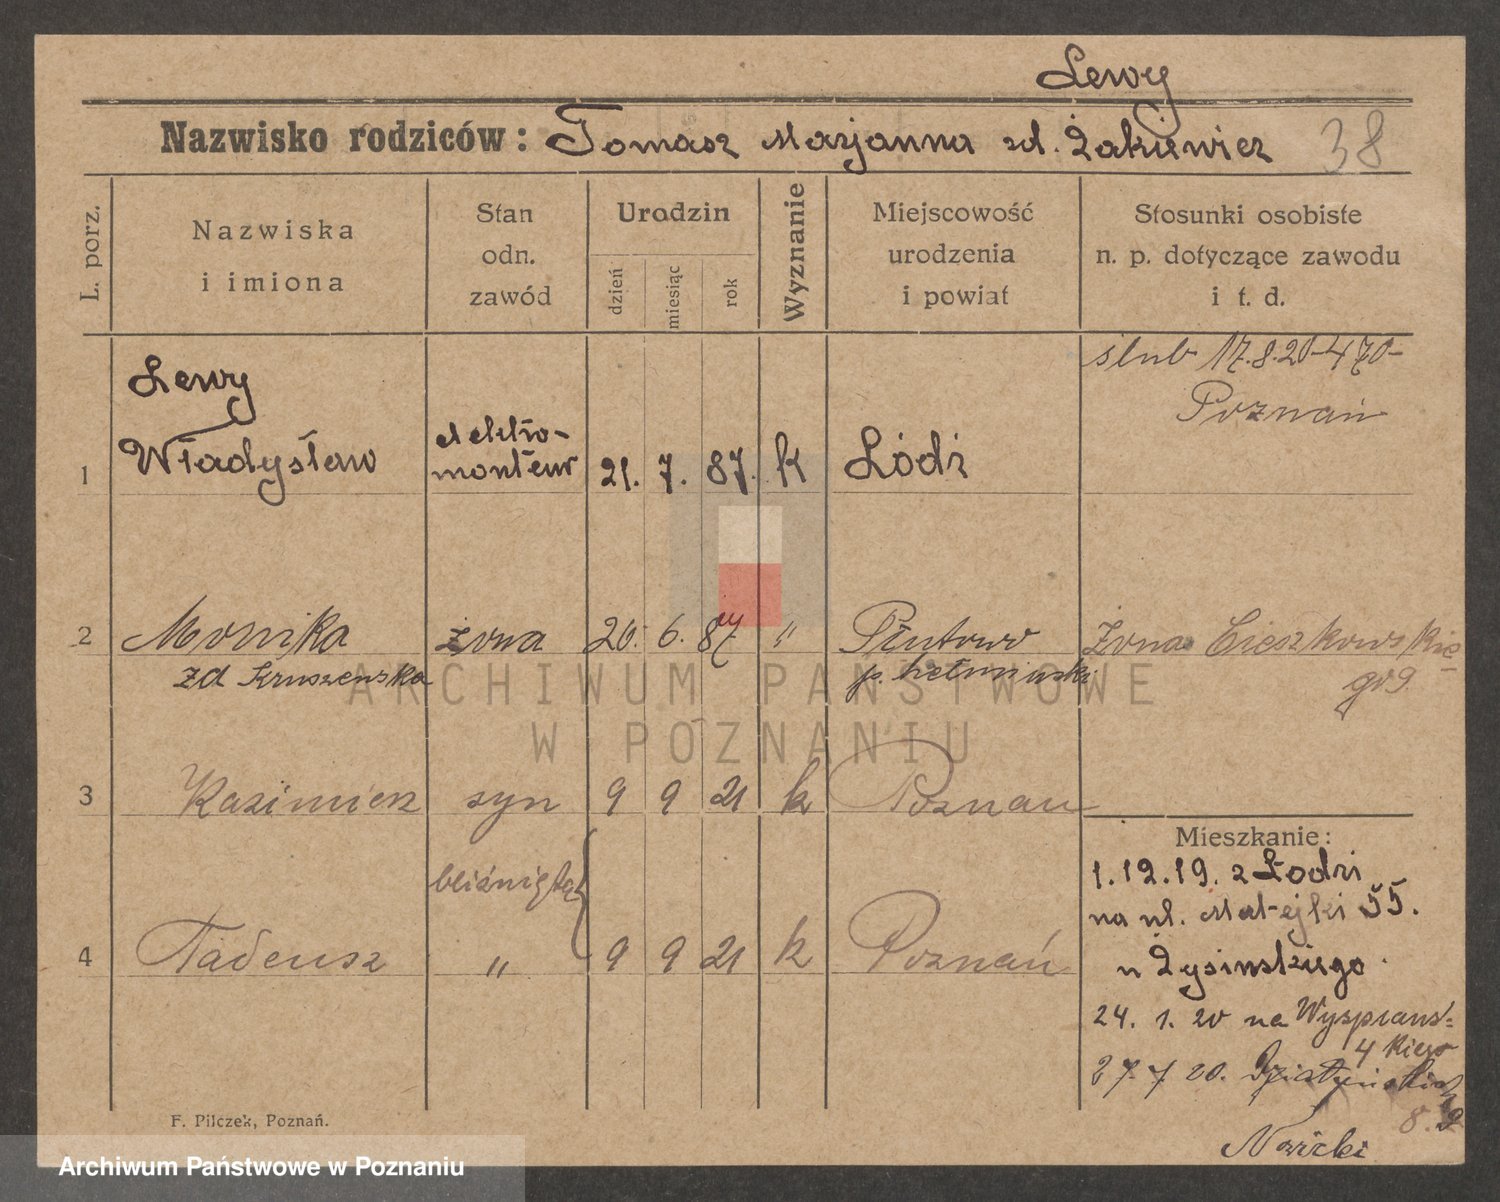 Lewy
Nazwisko rodziców: Tomasz Marjanna zd. Żakiewicz 38
L. porz.
Nazwiska
i imiona
Stan
odn.
zawód
Urodzin
dzień
miesiąc
rok
Wyznanie
Miejscowość
urodzenia
i powiat
Stosunki osobiste
n. p. dotyczące zawodu
i t. d.
ślub 17.8.20-470-
Poznań
1
Lewy
Władysław
elektro-
monteur
21. 7. 87. k Łódź
2 Monika żona 20. 6. 87 " Płutowo Żona Cieszkowskie-
zd Kruszenska p. hełmiński go 9.
3 Kazimierz syn 9 9 21 k Poznań
bliźnięta
4 Tadeusz " 9 9 21 k Poznań
Mieszkanie:
1.12.19. z Łodzi
na ul. Matejki 55.
u Żysinskiego
24. 1. 20 na Wyspians-
kiego 4
27. 7. 20. Działyńskich
8.
Nowicki
F. Pilczek, Poznań.
ARCHIWUM PAŃSTWOWE
W POZNANIU
Archiwum Państwowe w Poznaniu